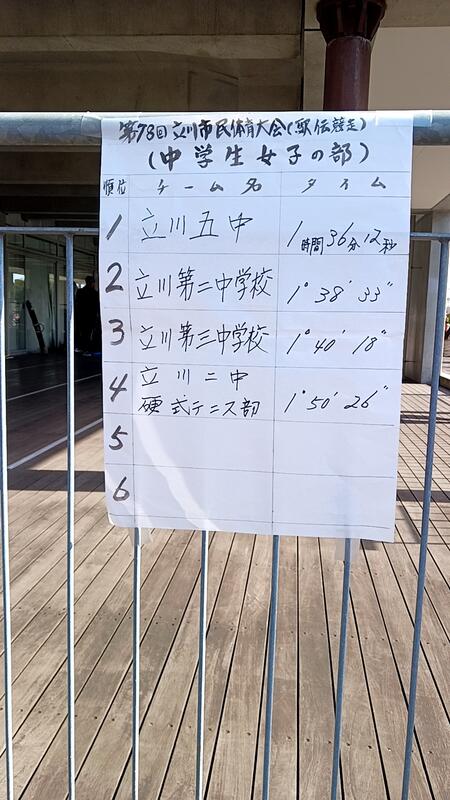 第73回立川市民体育大会(駅伝競走)
(中学生女子の部)
順位 チーム名 タイム
1 立川五中 1時間36分12秒
2 立川第二中学校 1°38′33″
3 立川第三中学校 1°40′18″
4 立川二中
硬式テニス部 1°50′26″
5
6